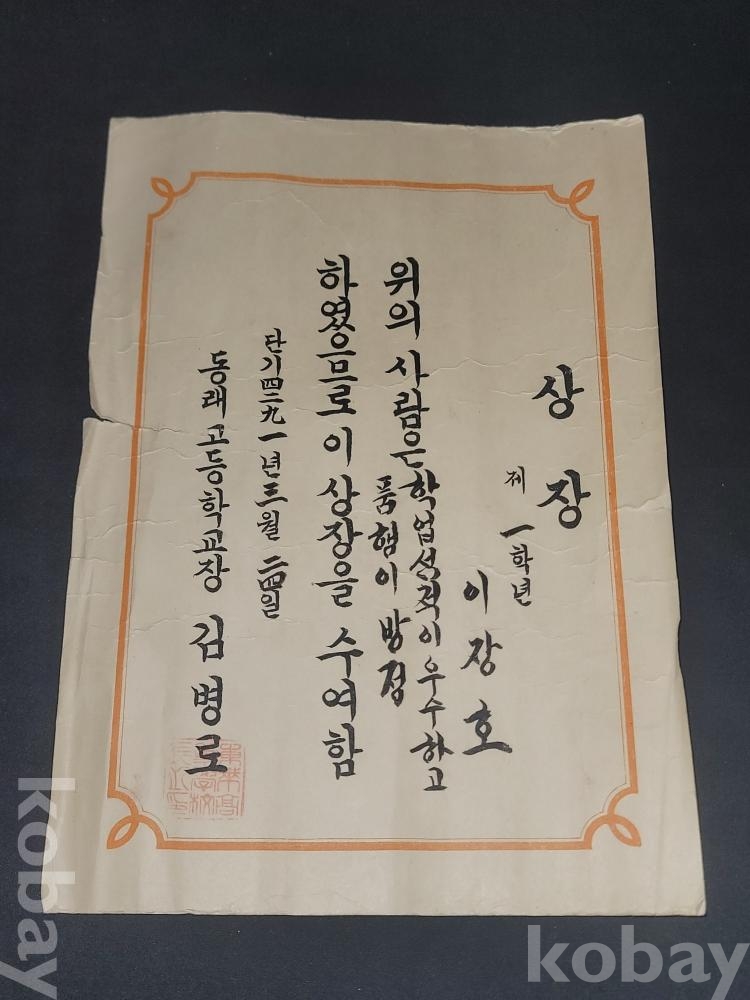 상장
제一학년
이장호
위의 사람은 학업성적이 우수하고
품행이 방정
하였음므로 이 상장을 수여함
단기四二九一년 三월 二四일
동래고등학교장 김병로
kobay
kobay